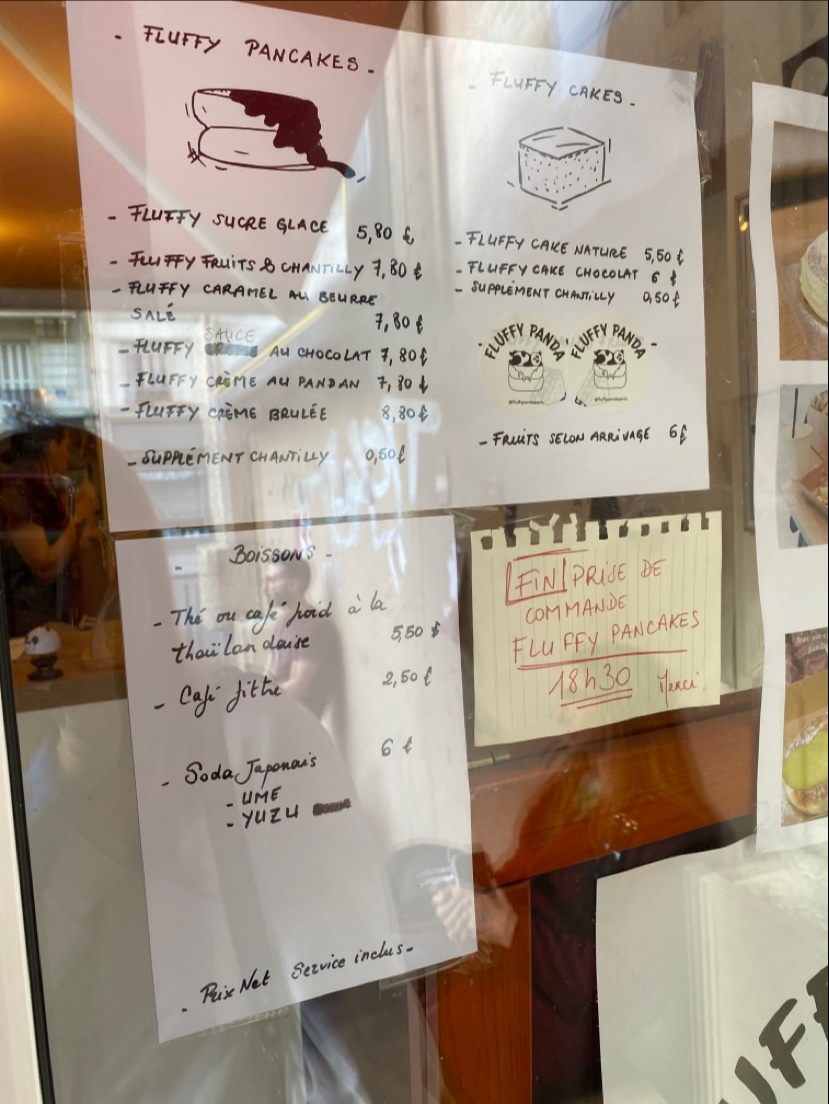 - FLUFFY PANCAKES -
- FLUFFY SUCRE GLACE 5,80 €
- FLUFFY FRUITS & CHANTILLY 7,80 €
- FLUFFY CARAMEL AU BEURRE
SALÉ 7,80 €
- FLUFFY SAUCE AU CHOCOLAT 7,80 €
- FLUFFY CRÈME AU PANDAN 7,80 €
- FLUFFY CRÈME BRULÉE 8,80 €
- SUPPLÉMENT CHANTILLY 0,60 €
- FLUFFY CAKES -
- FLUFFY CAKE NATURE 5,50 €
- FLUFFY CAKE CHOCOLAT 6 €
- SUPPLÉMENT CHANTILLY 0,50 €
FLUFFY PANDA FLUFFY PANDA
- FRUITS SELON ARRIVAGE 6 €
- BOISSONS -
- Thé ou café froid à la
thaïlandaise 5,50 €
- Café filtre 2,50 €
- Soda Japonais 6 €
- UME
- YUZU
- Prix Net Service inclus -
FIN PRISE DE
COMMANDE
FLUFFY PANCAKES
18h30 Merci